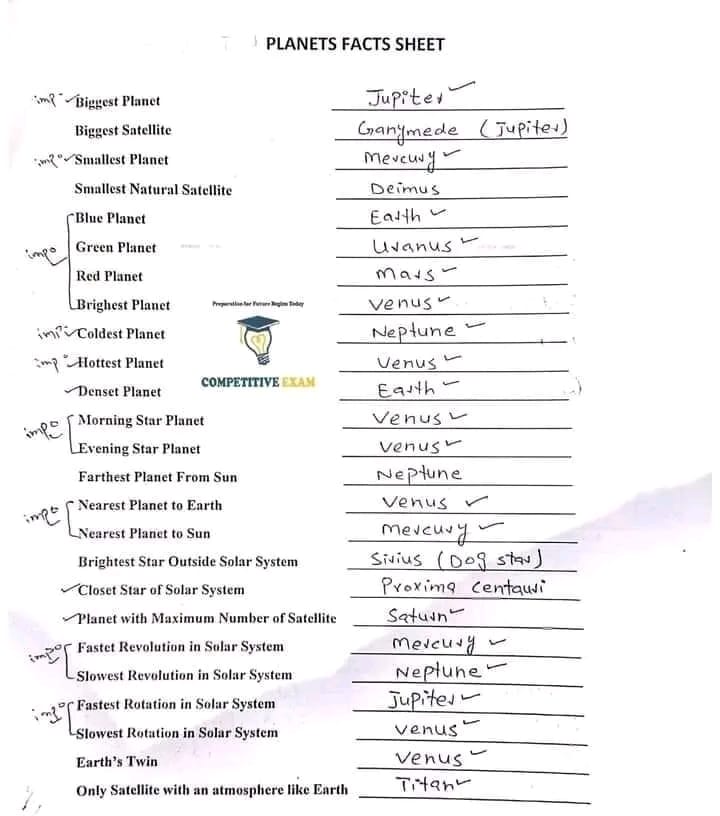 PLANETS FACTS SHEET
imp Biggest Planet Jupiter
Biggest Satellite Ganymede (Jupiter)
imp Smallest Planet Mercury
Smallest Natural Satellite Deimus
Blue Planet Earth
imp Green Planet Uranus
Red Planet Mars
Brighest Planet Venus
Preparation for Future Begins Today
imp Coldest Planet Neptune
imp Hottest Planet Venus
COMPETITIVE EXAM
Denset Planet Earth
imp Morning Star Planet Venus
Evening Star Planet Venus
Farthest Planet From Sun Neptune
imp Nearest Planet to Earth Venus
Nearest Planet to Sun Mercury
Brightest Star Outside Solar System Sirius (Dog star)
Closet Star of Solar System Proxima Centauri
Planet with Maximum Number of Satellite Saturn
imp Fastet Revolution in Solar System Mercury
Slowest Revolution in Solar System Neptune
imp Fastest Rotation in Solar System Jupiter
Slowest Rotation in Solar System Venus
Earth's Twin Venus
Only Satellite with an atmosphere like Earth Titan